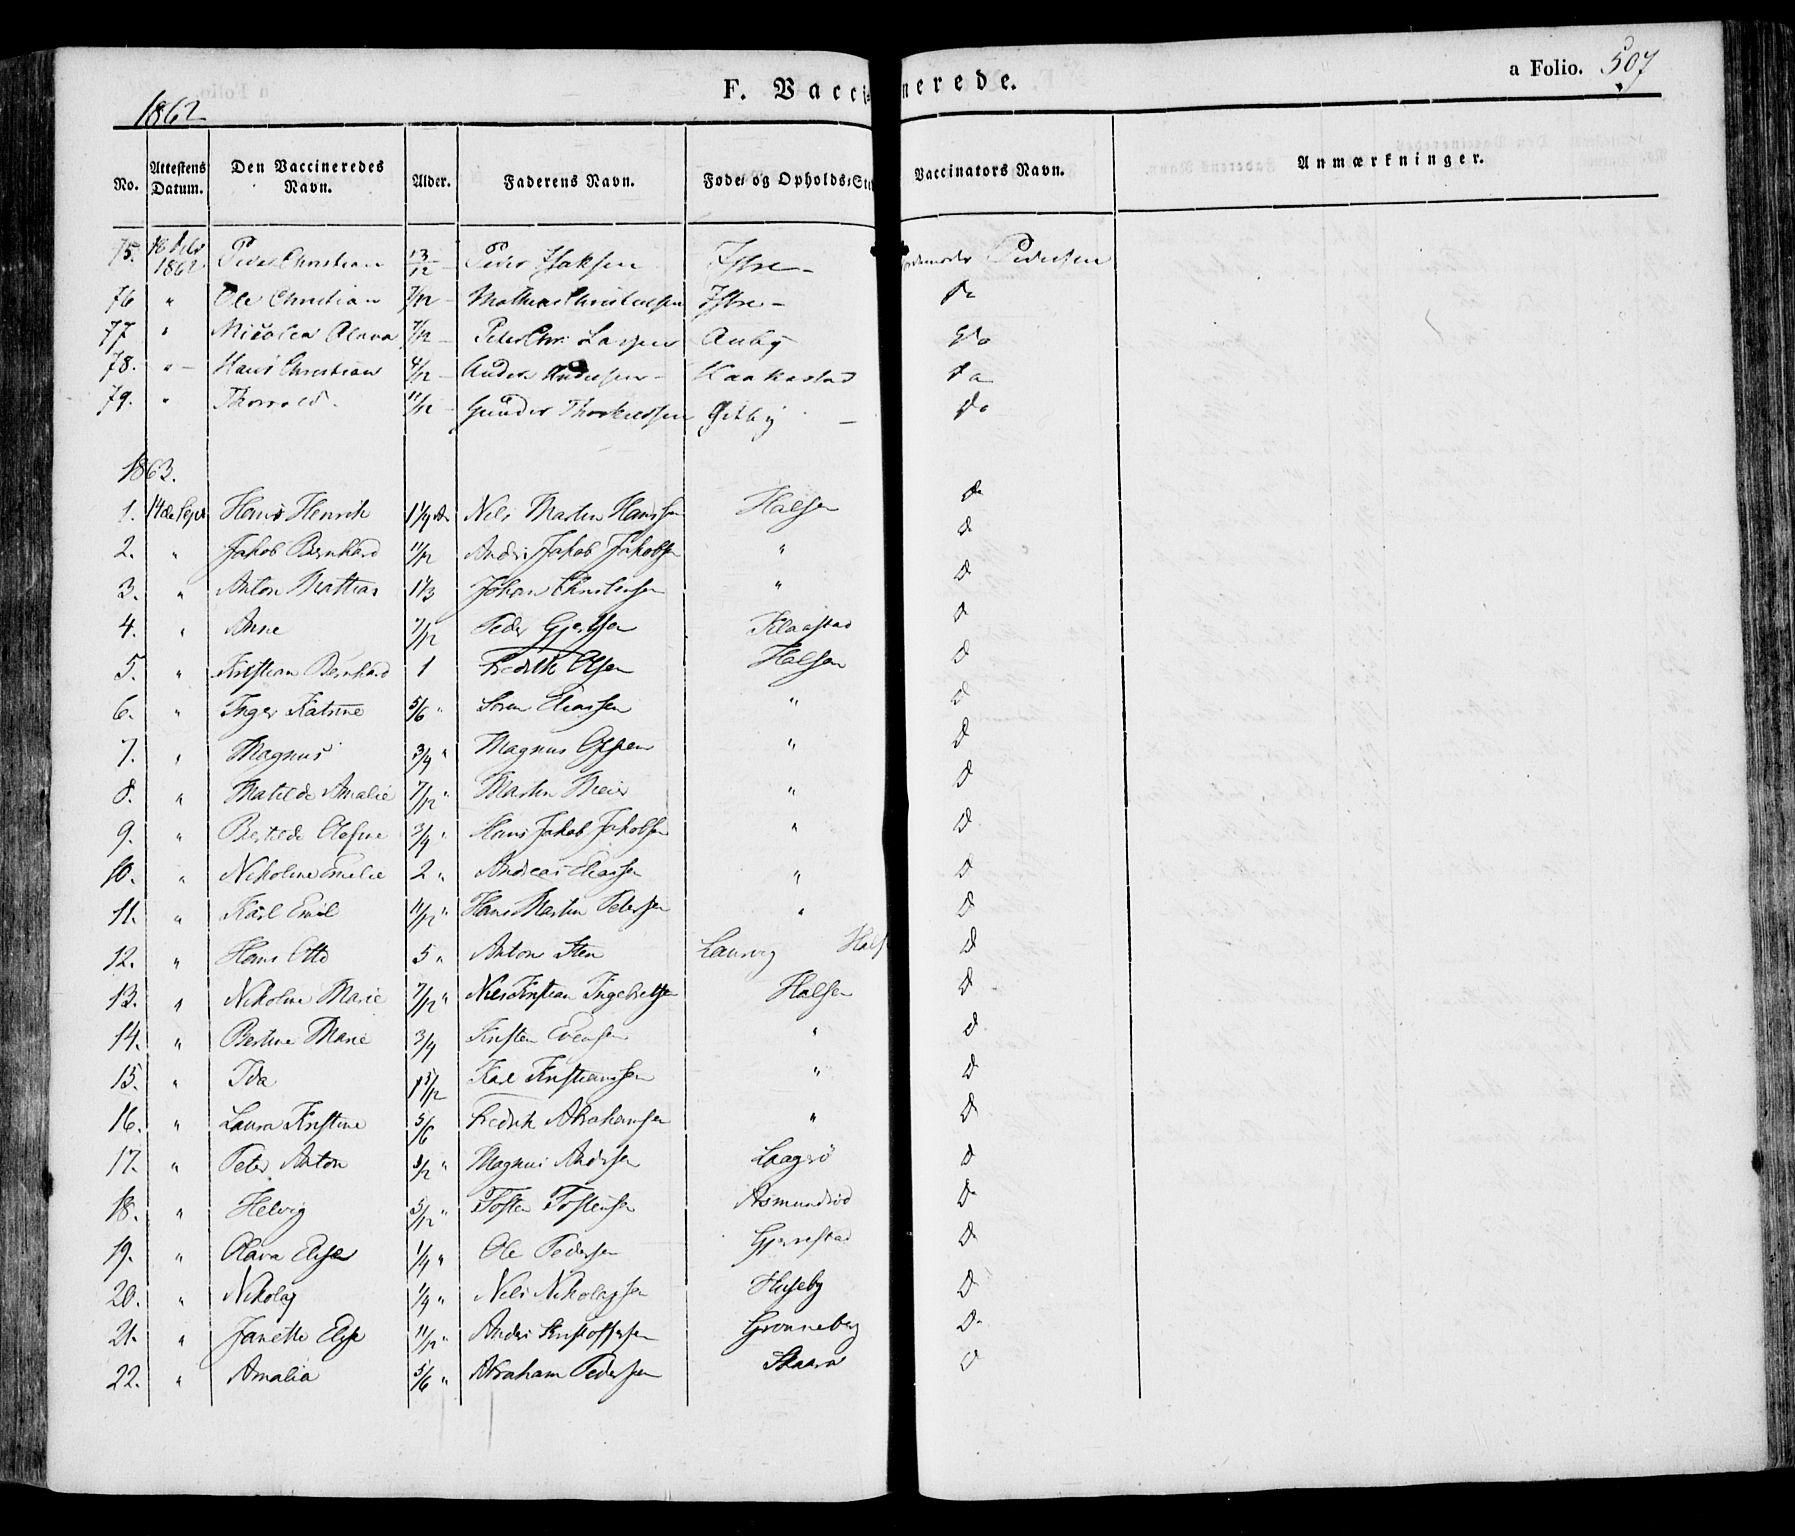 F. Vaccinerede.
a Folio. 507
1862
No. Attestens Datum. Den Vaccineredes Navn. Alder. Faderens Navn. Føde- og Opholds-St Vaccinators Navn. Anmærkninger.
75. 1862 Peder Christian 13/12 Peder Isaksen Istre - Pedersen
76 " Ole Christian 7/12 - Mathias Christensen Istre - Do
77 " Nicolea Olava 7/12 - Peder Chr. Auby Do
78. " - Hans Christian 4/12 - Anders Andersen - Kaakestad Do
79. " Thorvald. 11/12 - Gunder Thorkildsen Do
1863.
1. 14de Sept Hans Henrik 1 1/4 Nils Martin Hanssen Halsen D
2. " Jakob Bernhard 11/12 Anders Jakob Jakobsen " D
3. " Anton Mattias 1 1/3 Johan Christensen " D
4. " Anne 7/12 Peder Gjertsen Klaastad D
5. " Kristian Bernhard 1 Fredrik Olsen Halsen D
6. " Inger Katrine 5/6 " Søren Eliassen " D
7. " Magnus 3/4 " Magnus " D
8. " Matilde Amalie 7/12 " Martin Meier " D
9. " Bertilde Olefine 3/4 " Hans Jakob Jakobsen " D
10. " Nikoline Emelie 2 " Andreas Eliassen " D
11. " Karl Emil 11/12 " Hans Martin Petersen " D
12. " Hans Otto 5 " Anton Sten Laurvig Hals D
13. " Nikoline Marie 7/12 " Nils Kristian Ingebretsen Halsen D
14. " Bertine Marie 3/4 Kristen Evensen " D
15. " Ida 1 5/12 Karl Kristianssen " D
16. " Laura Kristine 5/6 Fredrik Abrahamsen " D
17. " Peter Anton /12 " Magnus Andersen Laagrø D
18. " Helvig 5/12 " Tosten Tostensen Asmundrød D
19. " Olava Elise 1/4 " Ole Pedersen Gjerrestad D
20. " Nikolaj 1/4 " Nils Nikolajsen Huseby D
21. " Janette Elise 11/12 " Anders Kristoffersen Grønneberg D
22. " Amalia 5/6 " Abraham Pedersen Skaara D